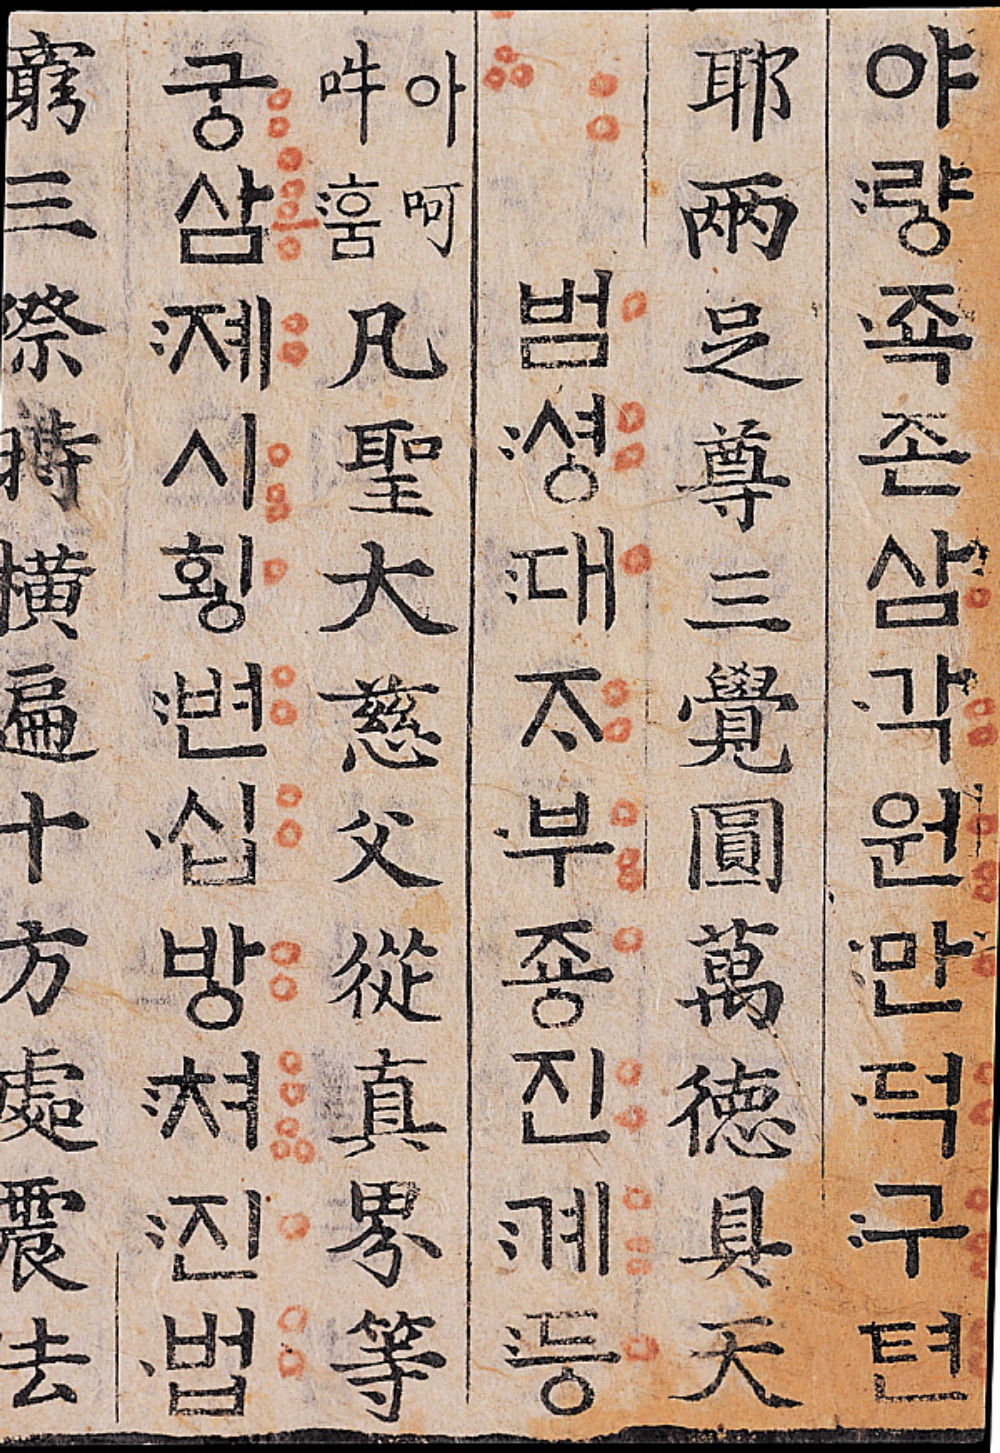 야량죡존삼각원만덕구텬
耶兩足尊三覺圓萬德具天
범셩대ᄌᆞ부죵진계등
아呵
吽훔
凡聖大慈父從真界等
궁삼졔시횡변십방쳐진법
窮三際時橫遍十方處震去